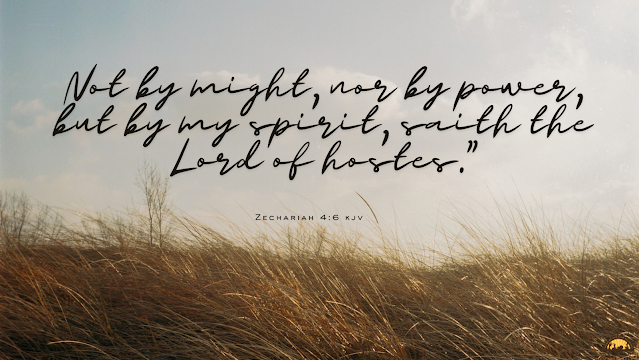 Not by might, nor by power,
but by my spirit, saith the
Lord of hostes."
Zechariah 4:6 KJV